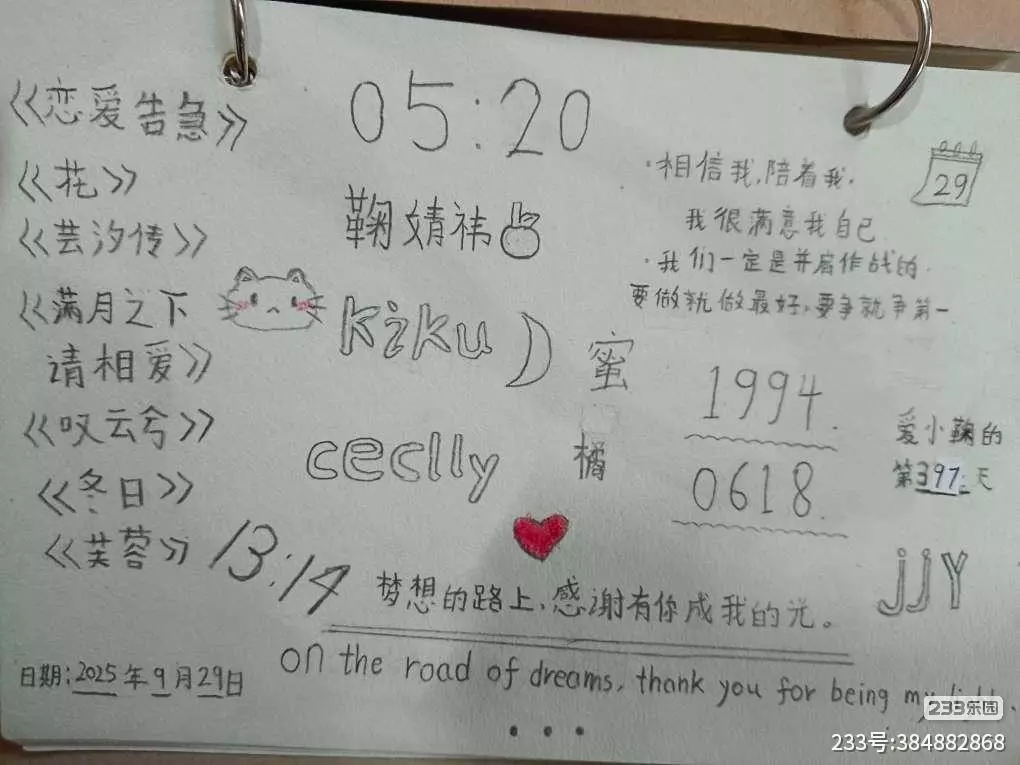 《恋爱告急》
《花》
《芸汐传》
《满月之下
请相爱》
《叹云兮》
《冬日》
《芙蓉》
05:20
鞠婧祎
kiku
蜜
橘
ceclly
13:14
·相信我,陪着我.
我很满意我自己
·我们一定是并肩作战的.
要做就做最好,要争就争第一
29
1994.
0618.
爱小鞠的
第397天
jjY
梦想的路上,感谢有你成我的光。
on the road of dreams, thank you for being my light.
日期:2025年9月29日
...
233乐园
233号:384882868